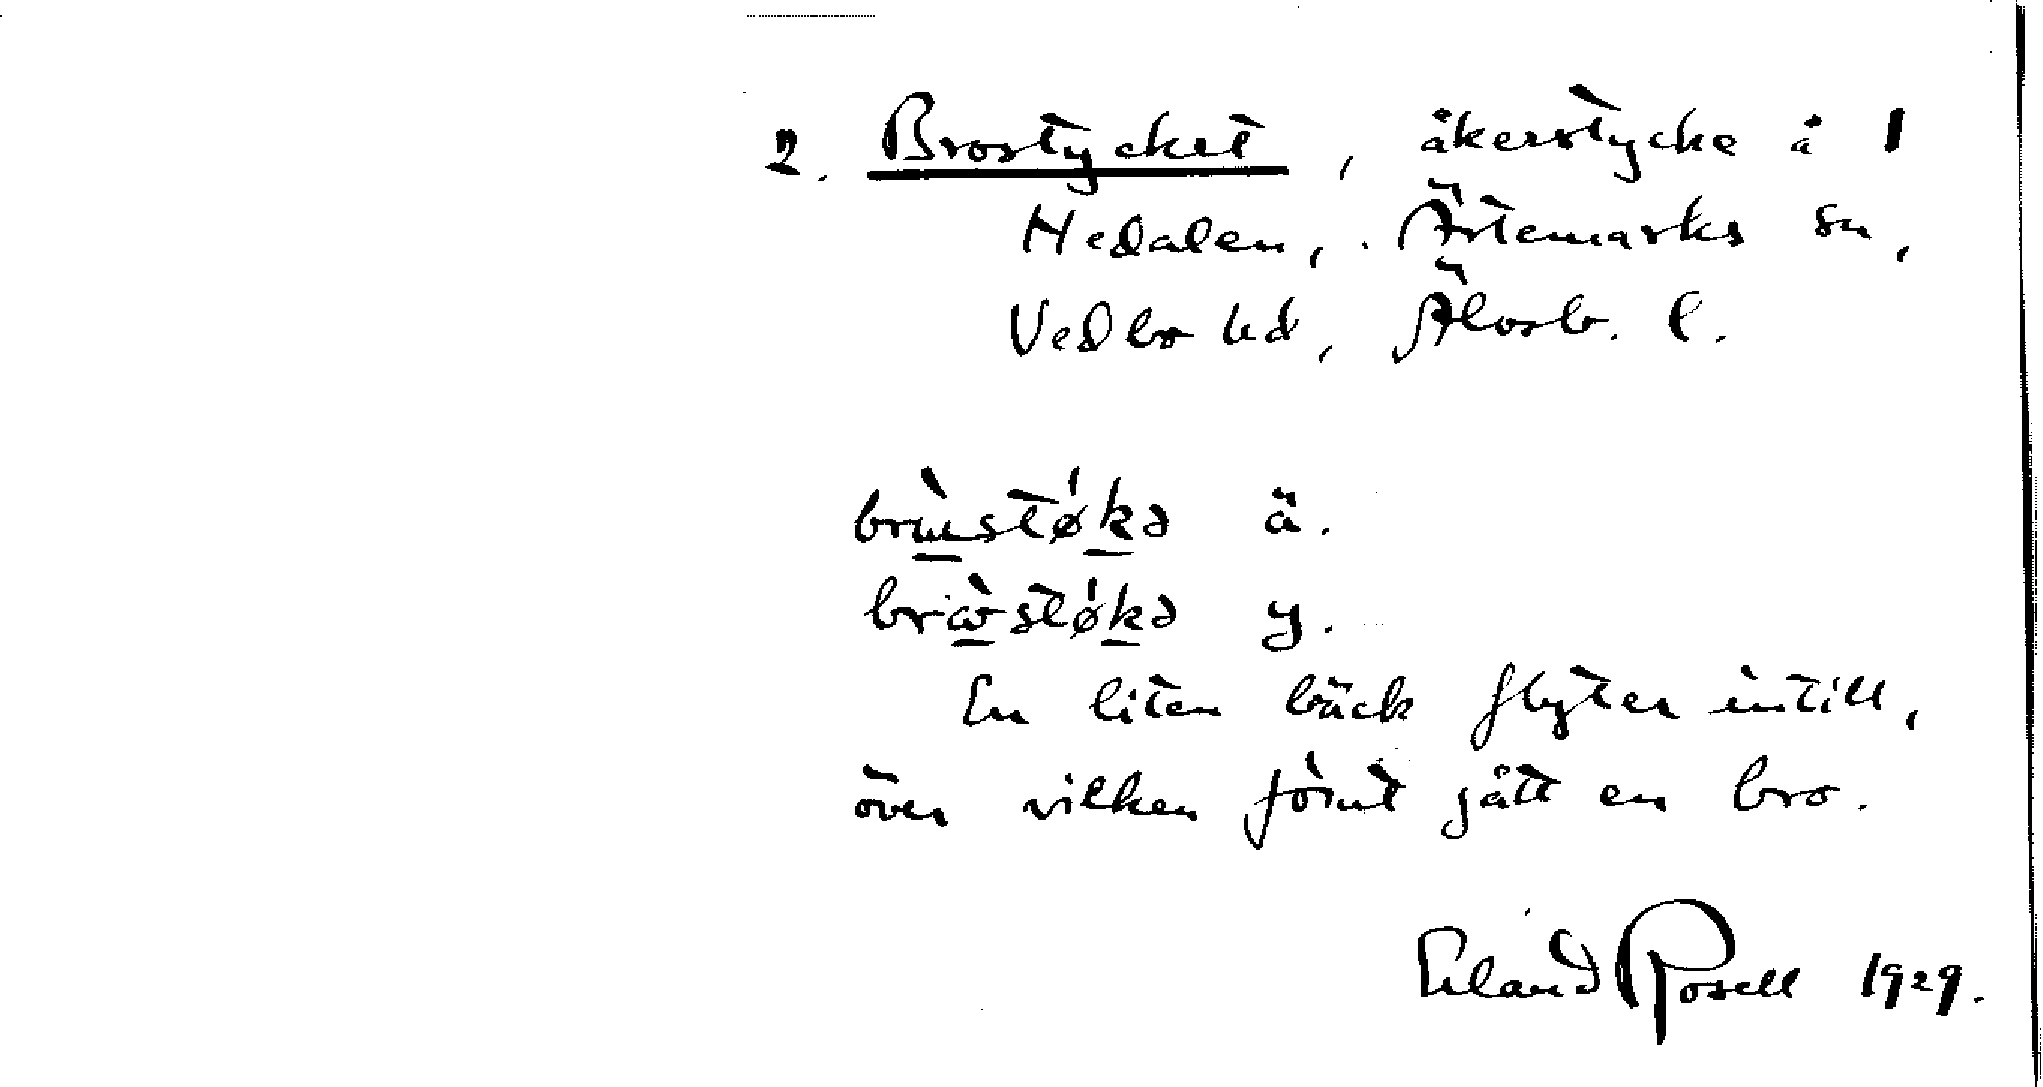 2. Brostycket, åkerstycke å 1
Hedalen, Ärtemarks sn,
Vedbo hd, Älvsb. l.
brɯ̀stǿkə ä.
brὼstǿkə y.
En liten bäck flyter intill,
över vilken förut gått en bro.
Erland Rosell 1929.